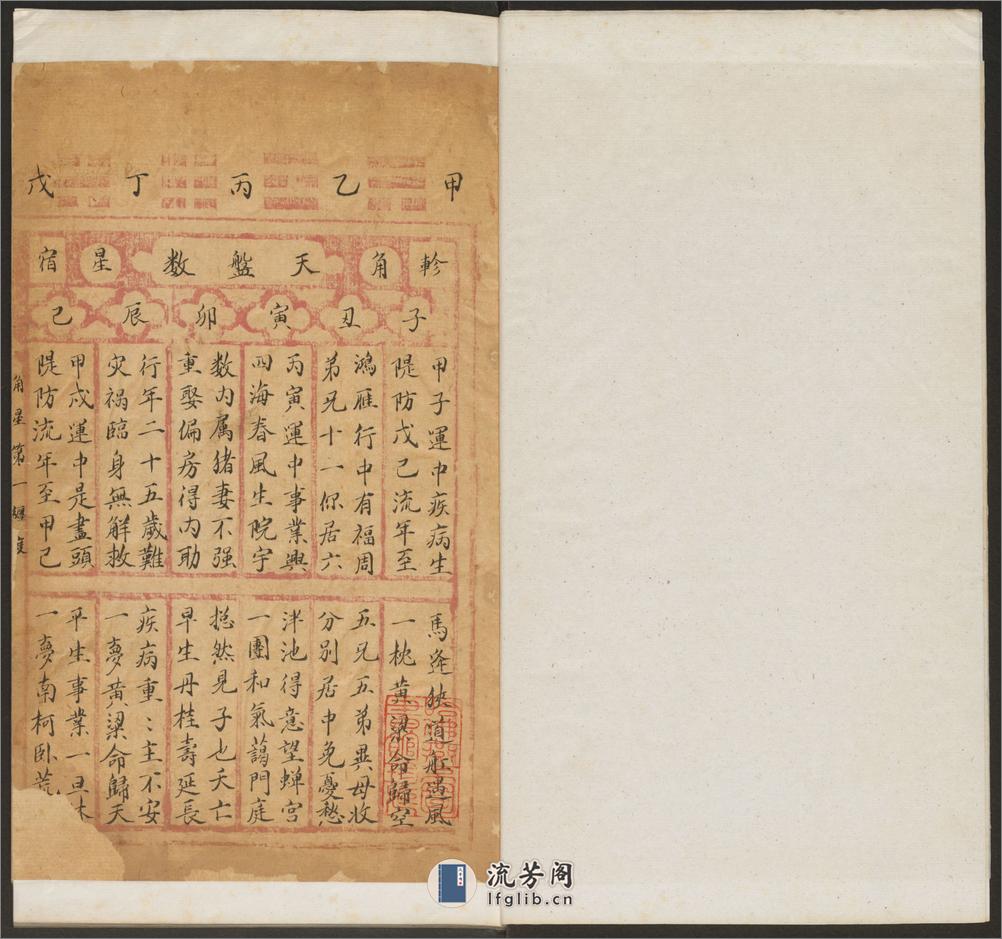 甲乙丙丁戊
軫角天盤数星宿
子丑寅卯辰巳
甲子運中疾病生
隄防戊己流年至
馬逢狹道舡遇風
一枕黄粱命歸空
鴻雁行中有福周
弟兄十一你居六
五兄五弟異母收
分别居中免憂愁
丙寅運中事業興
四海春風生院宇
泮池得意望蟬宫
一團和氣藹門庭
数内属猪妻不强
重娶偏房得内助
搃然見子也夭亡
早生丹桂壽延長
行年二十五歲難
灾禍臨身無解救
疾病重：主不安
一夢黄粱命歸天
甲戍運中是盡頭
隄防流年至甲己
平生事業一旦休
一夢南柯卧荒
角星第一
流芳阁
lfglib.cn